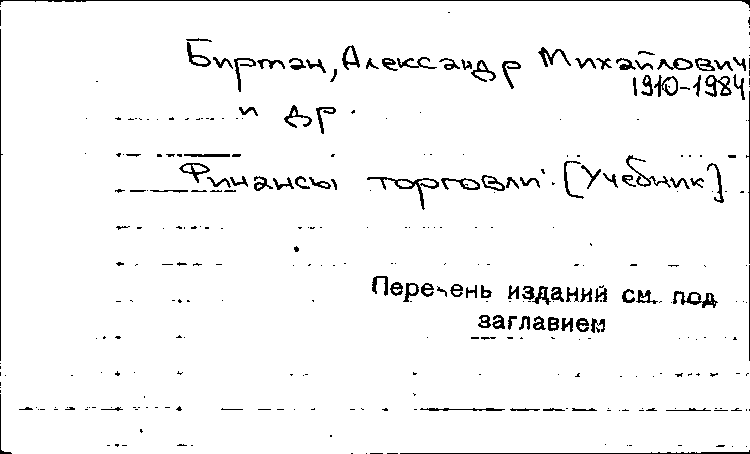 Бирман, Александр Михайлович
1910-1984
и др.
Финансы торговли. [Учебник]
Перечень изданий см. под
заглавием